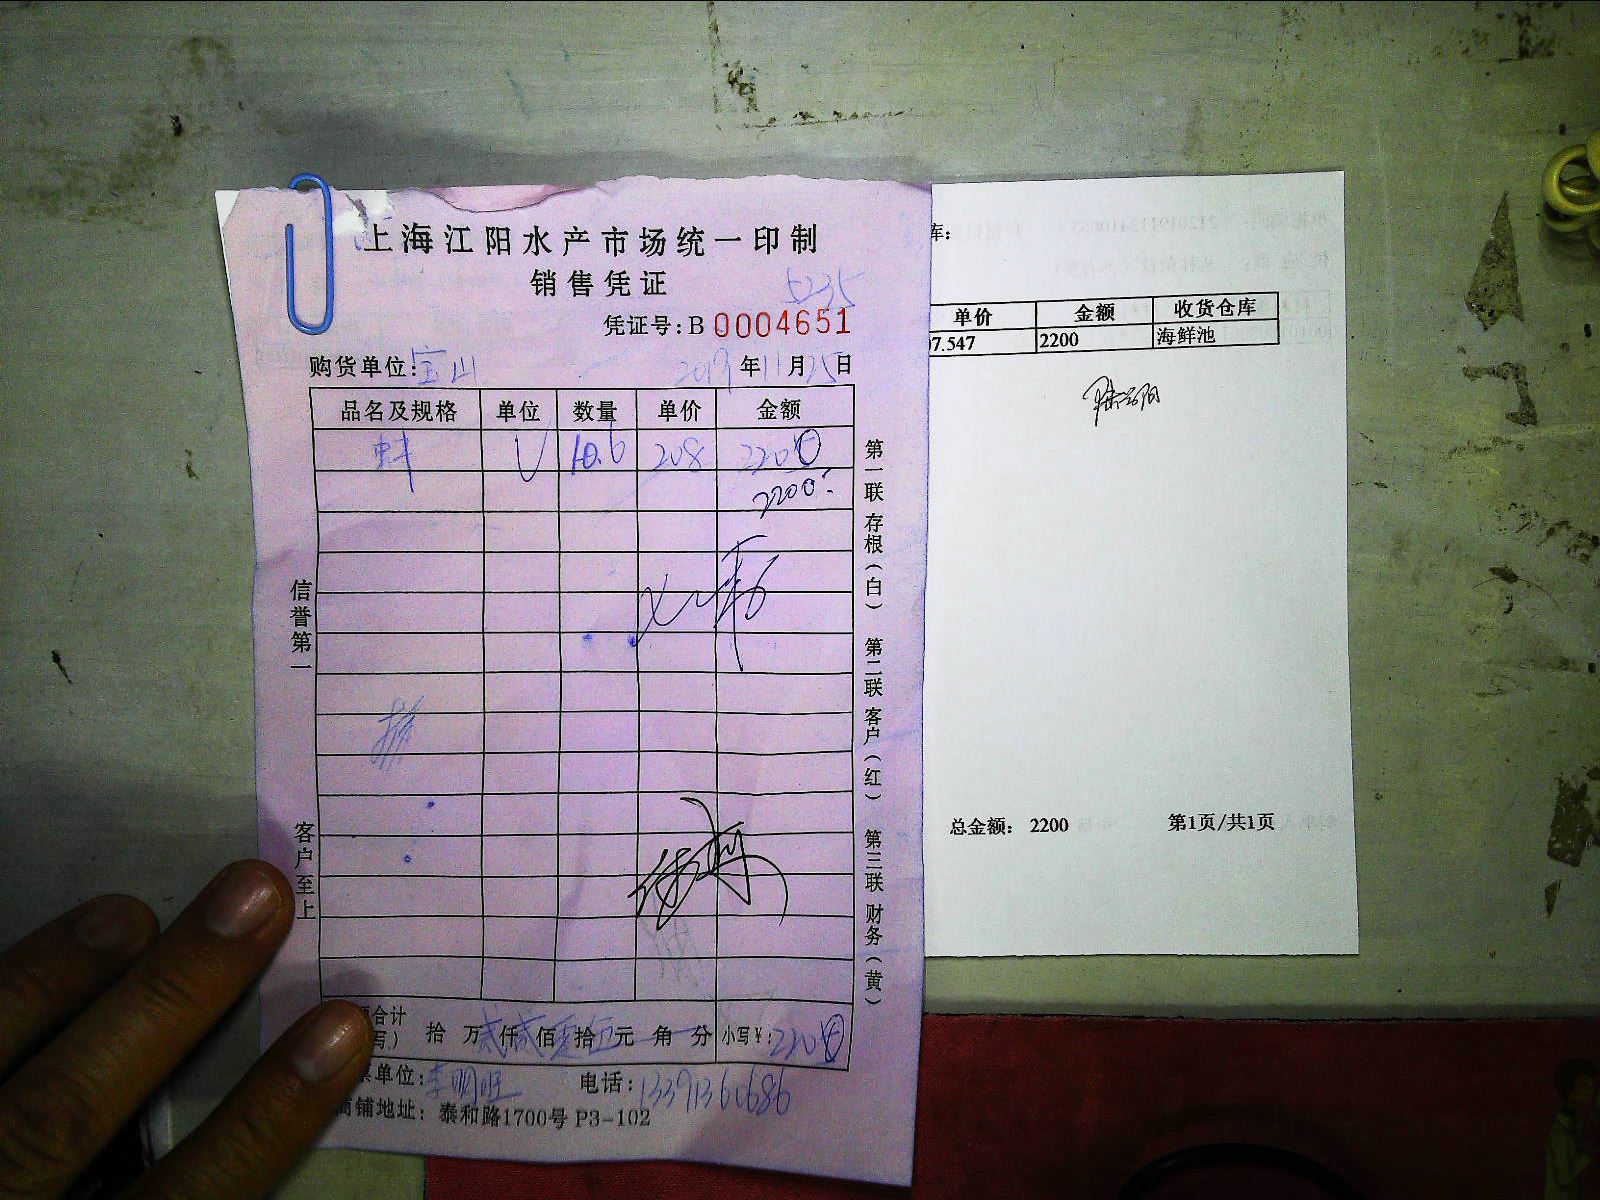 上海江阳水产市场统一印制
销售凭证
5235
凭证号:B 0004651
购货单位:宝山 2019年11月25日
品名及规格 单位 数量 单价 金额
蚌 10.6 208 2205
2200
信誉第一
客户至上
第一联 存根(白) 第二联 客户(红) 第三联 财务(黄)
合计 拾 万贰仟贰佰零拾伍元 角 分 小写¥:2205
单位:李明旺 电话:13391361686
商铺地址: 泰和路1700号 P3-102
库:
单价 金额 收货仓库
7.547 2200 海鲜池
总金额: 2200 第1页/共1页